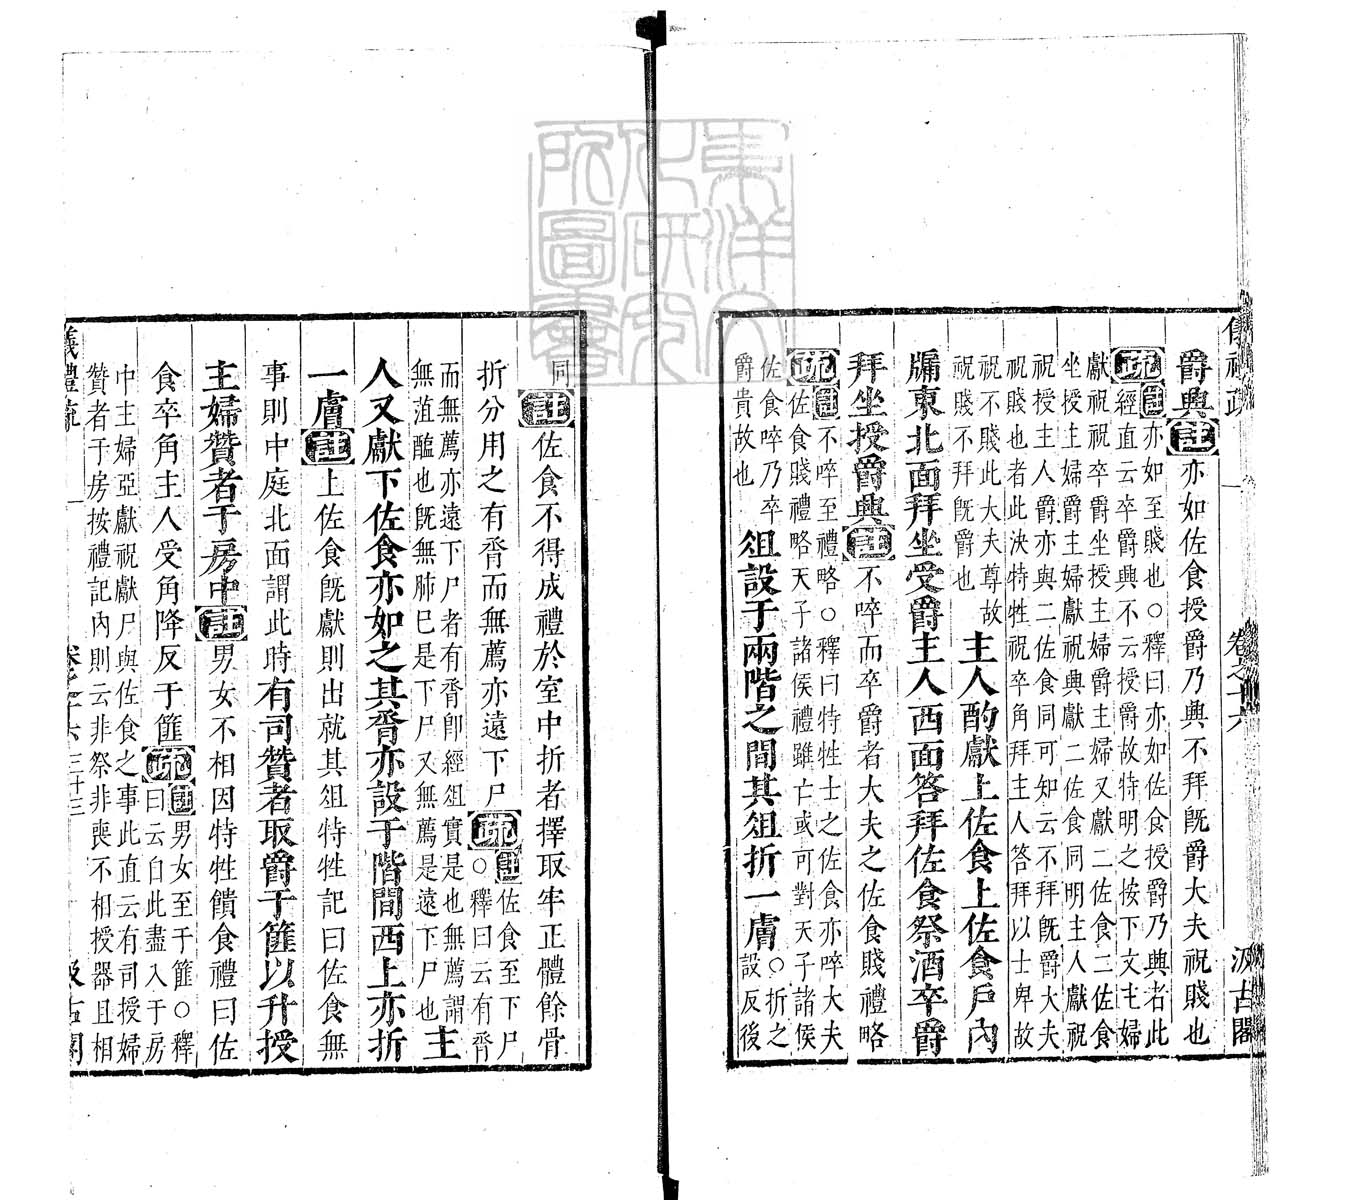 爵興註亦如佐食授爵乃興不拜旣爵大夫祝賤也
疏註亦如至賤也○釋曰亦如佐食授爵乃興者此
經直云卒爵興不云授爵故特明之按下文主婦
獻祝祝卒爵坐授主婦爵主婦又獻二佐食二佐食
坐授主婦爵主婦獻祝興獻二佐食同明主人獻祝
祝授主人爵亦與二佐食同可知云不拜旣爵大夫
祝賤也者此決特牲祝卒角拜主人答拜以士卑故
祝不賤此大夫尊故
祝賤不拜旣爵也
主人酌獻上佐食上佐食戶內
牖東北面拜坐受爵主人西面答拜佐食祭酒卒爵
拜坐授爵興註不啐而卒爵者大夫之佐食賤禮略
疏註不啐至禮略○釋曰特牲士之佐食亦啐大夫
佐食賤禮略天子諸侯禮雖亡或可對天子諸侯
佐食啐乃卒
爵貴故也
俎設于兩階之間其俎折一膚○折之
設反後
同註佐食不得成禮於室中折者擇取牢正體餘骨
折分用之有脀而無薦亦遠下尸疏註佐食至下尸
○釋曰云有脀
而無薦亦遠下尸者有脀卽經俎實是也無薦謂
無菹醢也旣無肺已是下尸又無薦是遠下尸也
主
人又獻下佐食亦如之其脀亦設于階間西上亦折
一膚註上佐食旣獻則出就其俎特牲記曰佐食無
事則中庭北面謂此時有司贊者取爵于篚以升授
主婦贊者于房中註男女不相因特牲饋食禮曰佐
食卒角主人受角降反于篚疏註男女至于篚○釋
曰云自此盡入于房
中主婦亞獻祝獻尸與佐食之事此直云有司授婦
贊者于房按禮記內則云非祭非喪不相授器且相
儀禮疏 卷之十六 三十三 汲古閣